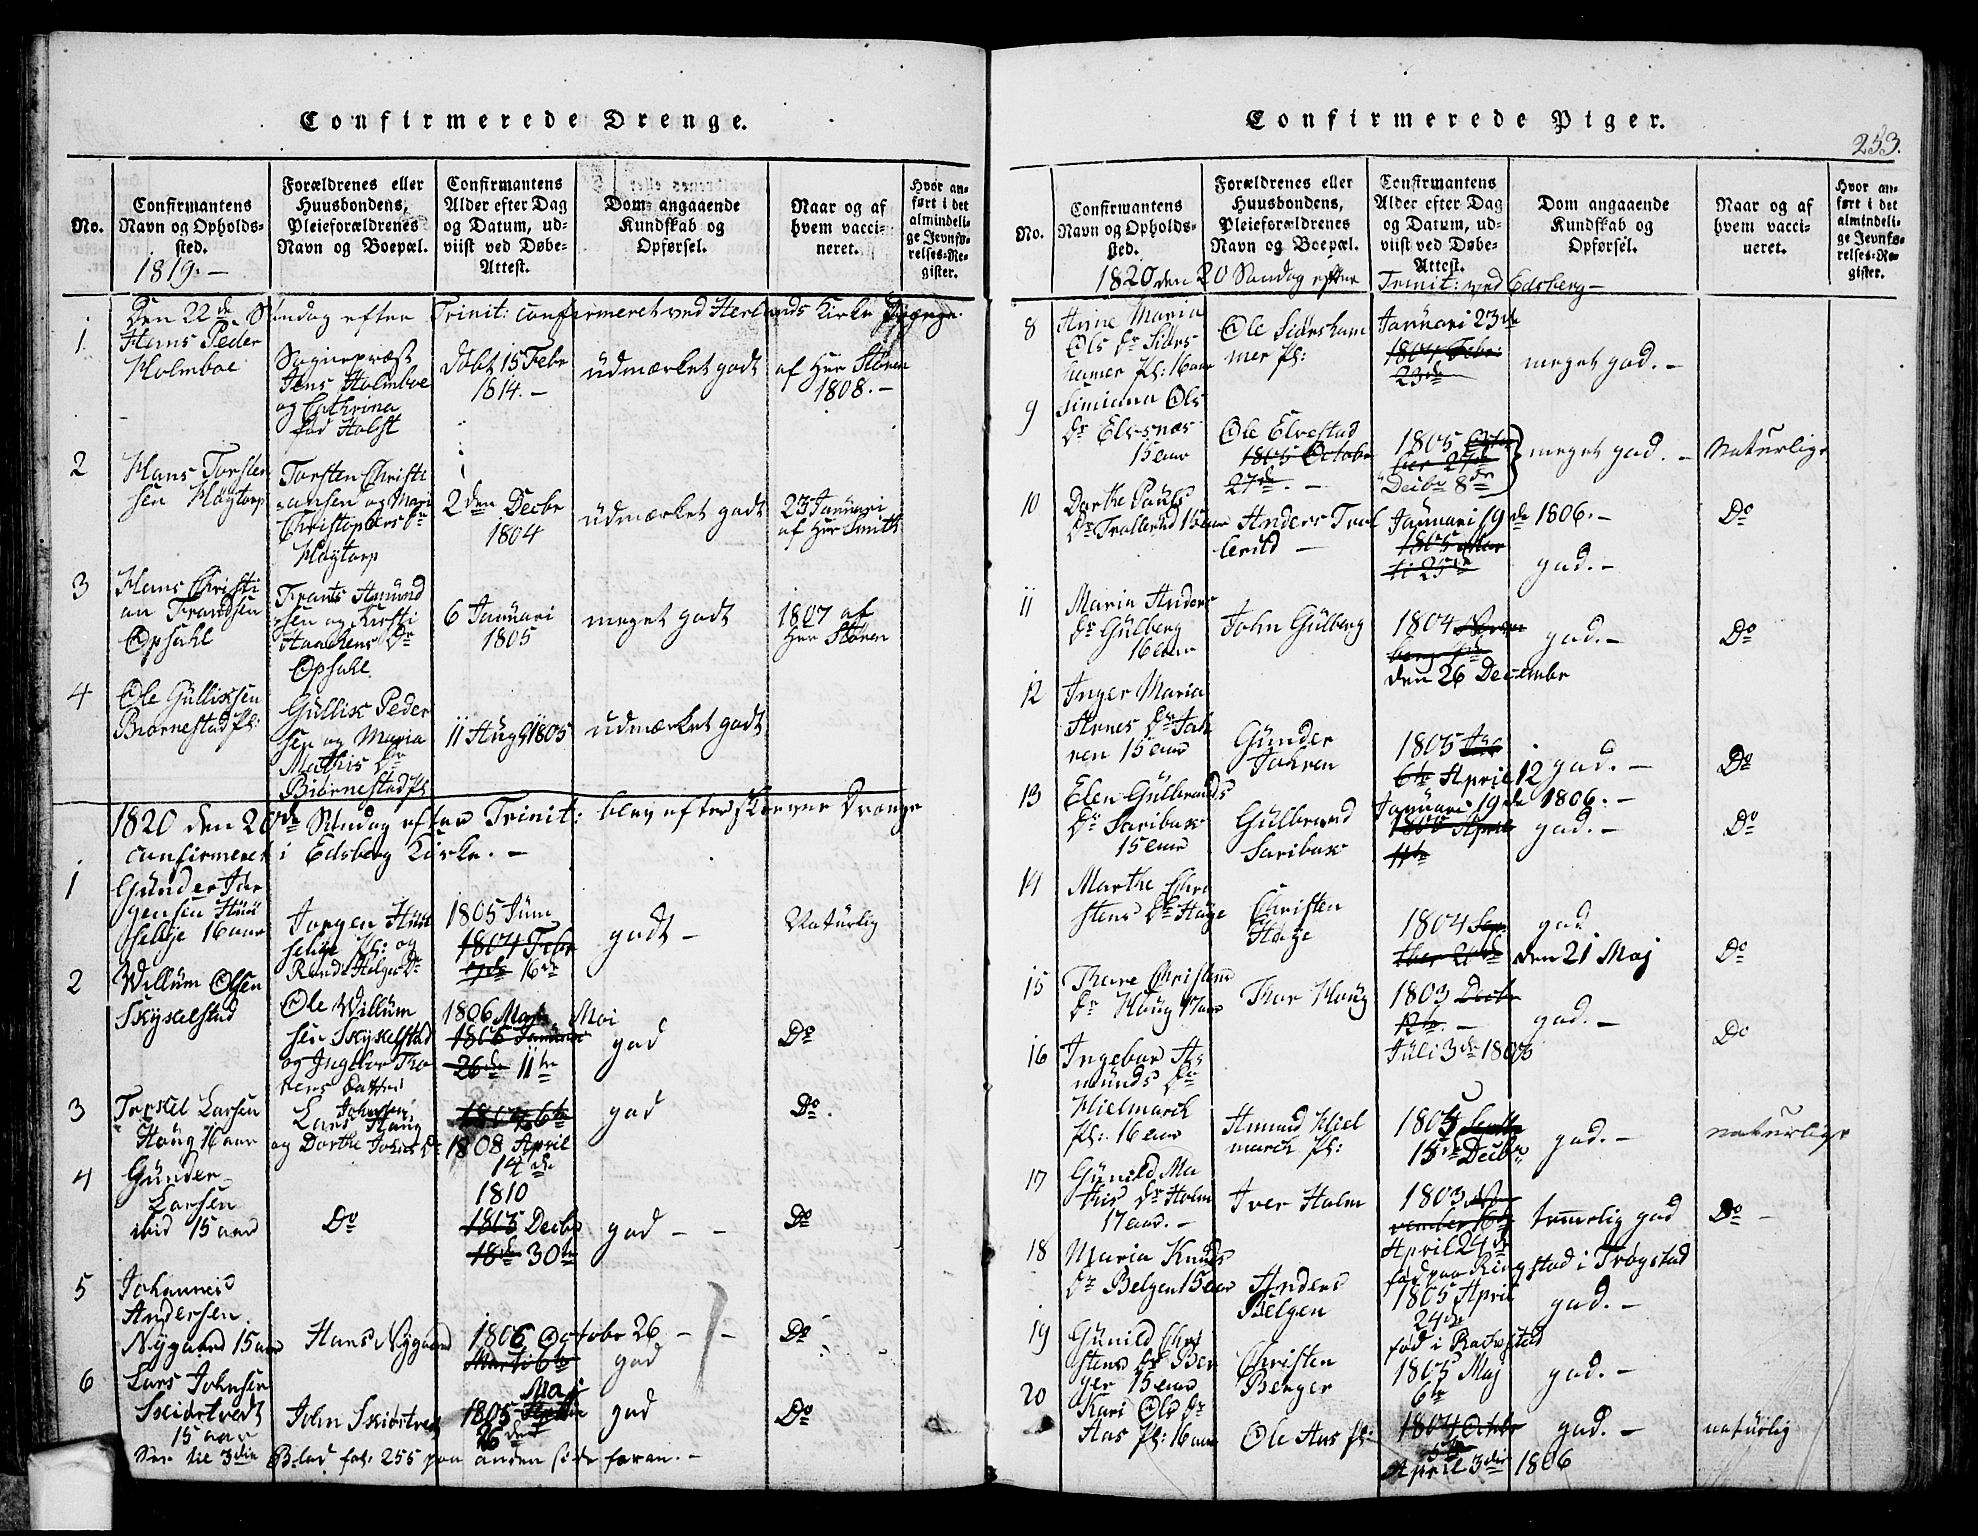 Confirmerede Drenge.
No.
Confirmantens
Navn og Opholds-
sted.
1819. —
Forældrenes eller
Huusbondens,
Pleieforældrenes
Navn og Boepæl.
Confirmantens
Alder efter Dag
og Datum, ud-
viist ved Døbe-
Attest.
Dom angaaende
Kundskab og
Opførsel.
Naar og af
hvem vacci-
neret.
Hvor an-
ført i det
almindeli-
ge Jevnfø-
relses-Re-
gister.
Den 22de Søndag efter Trinit: confirmeret ved Herlands Kirke
1.
Hans Peder
Holmboe
Sognepræst
Jens Holmboe
og Cathrina
fød Holst
Døbt 15 Febr
1814. —
udmærket godt
af Her Støren
1808. —
2
Hans Torsten
sen Høytorp
Torsten Christi
ansen og Mari
Christophers Dr
Høytorp
2den Decbr
1804
udmærket godt
23 Januari
af Her Smith
3
Hans Christi
an Frandsen
Opsahl
Frants Amund
sen og Kirsti
Haachens Dr
Opsahl
6 Januari
1805
meget godt
1807 af
Her Støren
4
Ole Gullixsen
Biørnestad Pl:
Gullix Peder
sen og Maria
Mathis Dr
Biørnestad Pl
11 Aug 1805
udmærket godt
1820 den 20de Søndag efter Trinit: blev efterskrevne Drenge
confirmeret i Edsberg Kirke. —
1
Gunder Jør
gensen Huu
selye 16 aar
Jørgen Huu
selye Pl: og
Randi Helges Dr
1805 Juni
1804 Febr
16de
godt —
Naturlig
2
Willum Olsen
Skyselstad
Ole Willum
sen Skyselstad
og Ingebor Tho
rers Datter
1806 Maj Mai
1806 Januar
26de 11te
god
Do
3
Torkel Larsen
Haug 16 aar
Johnsen
Lars Haug
og Dorthe Johns Dr
1804 6te
1808 April
14de
god
Do.
4
Gunder
Larsen
ibid 15 aar
Do
1810
1805 Decbr
18de 30te
god — —
Do
5
Johannes
Andersen
Nygaard 15 aar
Hans Nygaard
1806 Octobr 26 — —
Marti 6te
god
Do
6
Lars Johnsen
Skiørtvedt
15 aar
John Skiørtvedt
Maji
1805
16de
god
Do
See til 3die Blad fol: 255 paa anden side foran. —
Confirmerede Piger.
253.
No.
Confirmantens
Navn og Opholds-
sted.
Forældrenes eller
Huusbondens,
Pleieforældrenes
Navn og Boepæl.
Confirmantens
Alder efter Dag
og Datum, ud-
viist ved Døbe-
Attest.
Dom angaaende
Kundskab og
Opførsel.
Naar og af
hvem vacci-
neret.
Hvor an-
ført i det
almindeli-
ge Jevnfø-
relses-Re-
gister.
1820 den 20 Søndag efter Trinit: ved Edsberg —
8
Anne Maria
Ols Dr Siørs
hamer Pl: 16 aar
Ole Siørsham
mer Pl:
Januari 23de
1804 Febr:
23de
meget god. —
9
Simiana Ols
Dr Elvsnæs
15 aar
Ole Elvestad
1805 Octobr
27de. —
1805 Octo
ber 27de
Decbr 8de
meget god. —
Naturlige
10
Dorthe Pauls
Dr Trollerud 15 aar
Anders Trol
lerud —
Januari 19de 1806. —
1805 Mar
ti 25de
god. —
Do
11
Maria Anders
Dr Gulberg
16 aar
John Gulberg
1804 Novem
ber
den 26 Decembr
god. —
Do
12
Inger Maria
Arnes Dr Joh
ren 15 aar
Gunder
Johren
1805
6te April 12
god. —
Do
13
Elen Gulbrands
Dr Saribax
15 aar
Gulbrand
Saribax
Januari 19de 1806. —
1805 April
11te
god. —
Do
14
Marthe Chri
stens Dr Hage
Christen
Hage
1804 Sep
tber 21de den 21 Maj
god
Do
15
Thore Christens
Dr Haug 17 aar
Thor Haug
1803 Decbr
12te. —
god. —
Do
16
Ingebor As
munds Dr
Hielmarck
Pl: 16 aar
Amund Hiel
marck Pl:
Juli 3de 1803
1805
15de Decbr
god. —
naturlige
17
Gunild Ma
this Dr Holm
17 aar. —
Iver Holm
1803 No
vember 16de
temmelig god
Do —
18
Maria Knuds
Dr Belgen 15 aar
Anders
Belgen
April 24de
fød paa Ringstad i Trøgstad
1805 April
24de
god. —
19
Gunild Chri
stens Dr Ber
ger 15 aar
Christen
Berger
fød i Rachestad
1805 Maj
6te
god. —
20
Kari Ols Dr
Aas Pl: 16 aar
Ole Aas Pl:
1804 Octbr
5te
April 3die 1806
god. —
naturlig